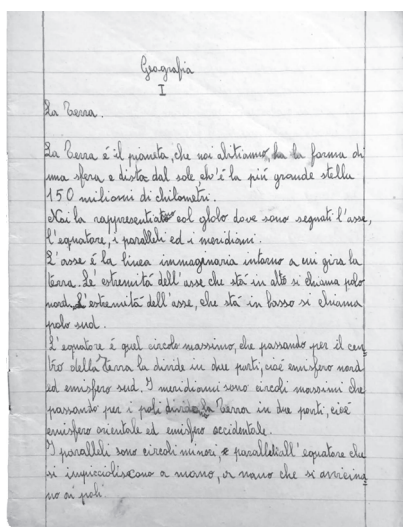 Geografia
I
La Terra.
La Terra é il pianeta, che noi abitiamo, ha la forma di
una sfera e dista dal sole ch'é la piú grande stella
150 milioni di chilometri.
Noi la rappresentiamo col globo dove sono segnati l'asse,
l'equatore, i paralleli ed i meridiani.
L'asse é la linea immaginaria intorno a cui gira la
terra. Le' estremitá dell'asse che stá in alto si chiama polo
nord. L'estremitá dell'asse, che stá in basso si chiama
polo sud.
L'equatore é quel circolo massimo, che passando per il cen
tro della Terra la divide in due parti, cioé emisfero nord
ed emisfero sud. I meridiani sono circoli massimi che
passando per i poli divido la Terra in due parti, cioé
emisfero orientale ed emisfero occidentale.
I paralleli sono circoli minori, e paralleli all'equatore che
si impiccioliscono a mano, a mano che si avvicina
no ai poli.